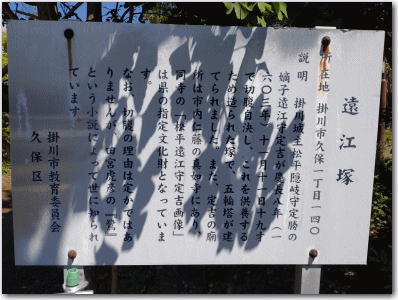 遠江塚
所在地 掛川市久保一丁目一四〇
説明 掛川城主松平隠岐守定勝の
嫡子遠江守定吉が慶長八年(一
六〇三年)十一月十一日十九才
で切腹自決し、これを供養する
ため造られた塚で、五輪塔が建
てられました。また、定吉の廟
所は市内仁藤の真如寺にあり、
同寺の「松平遠江守定吉画像」
は県の指定文化財となっていま
す。
なお、切腹の理由は定かではあ
りませんが、田宮虎彦の『鷺』
という小説によって世に知られ
ています。
掛川市教育委員会
久保区